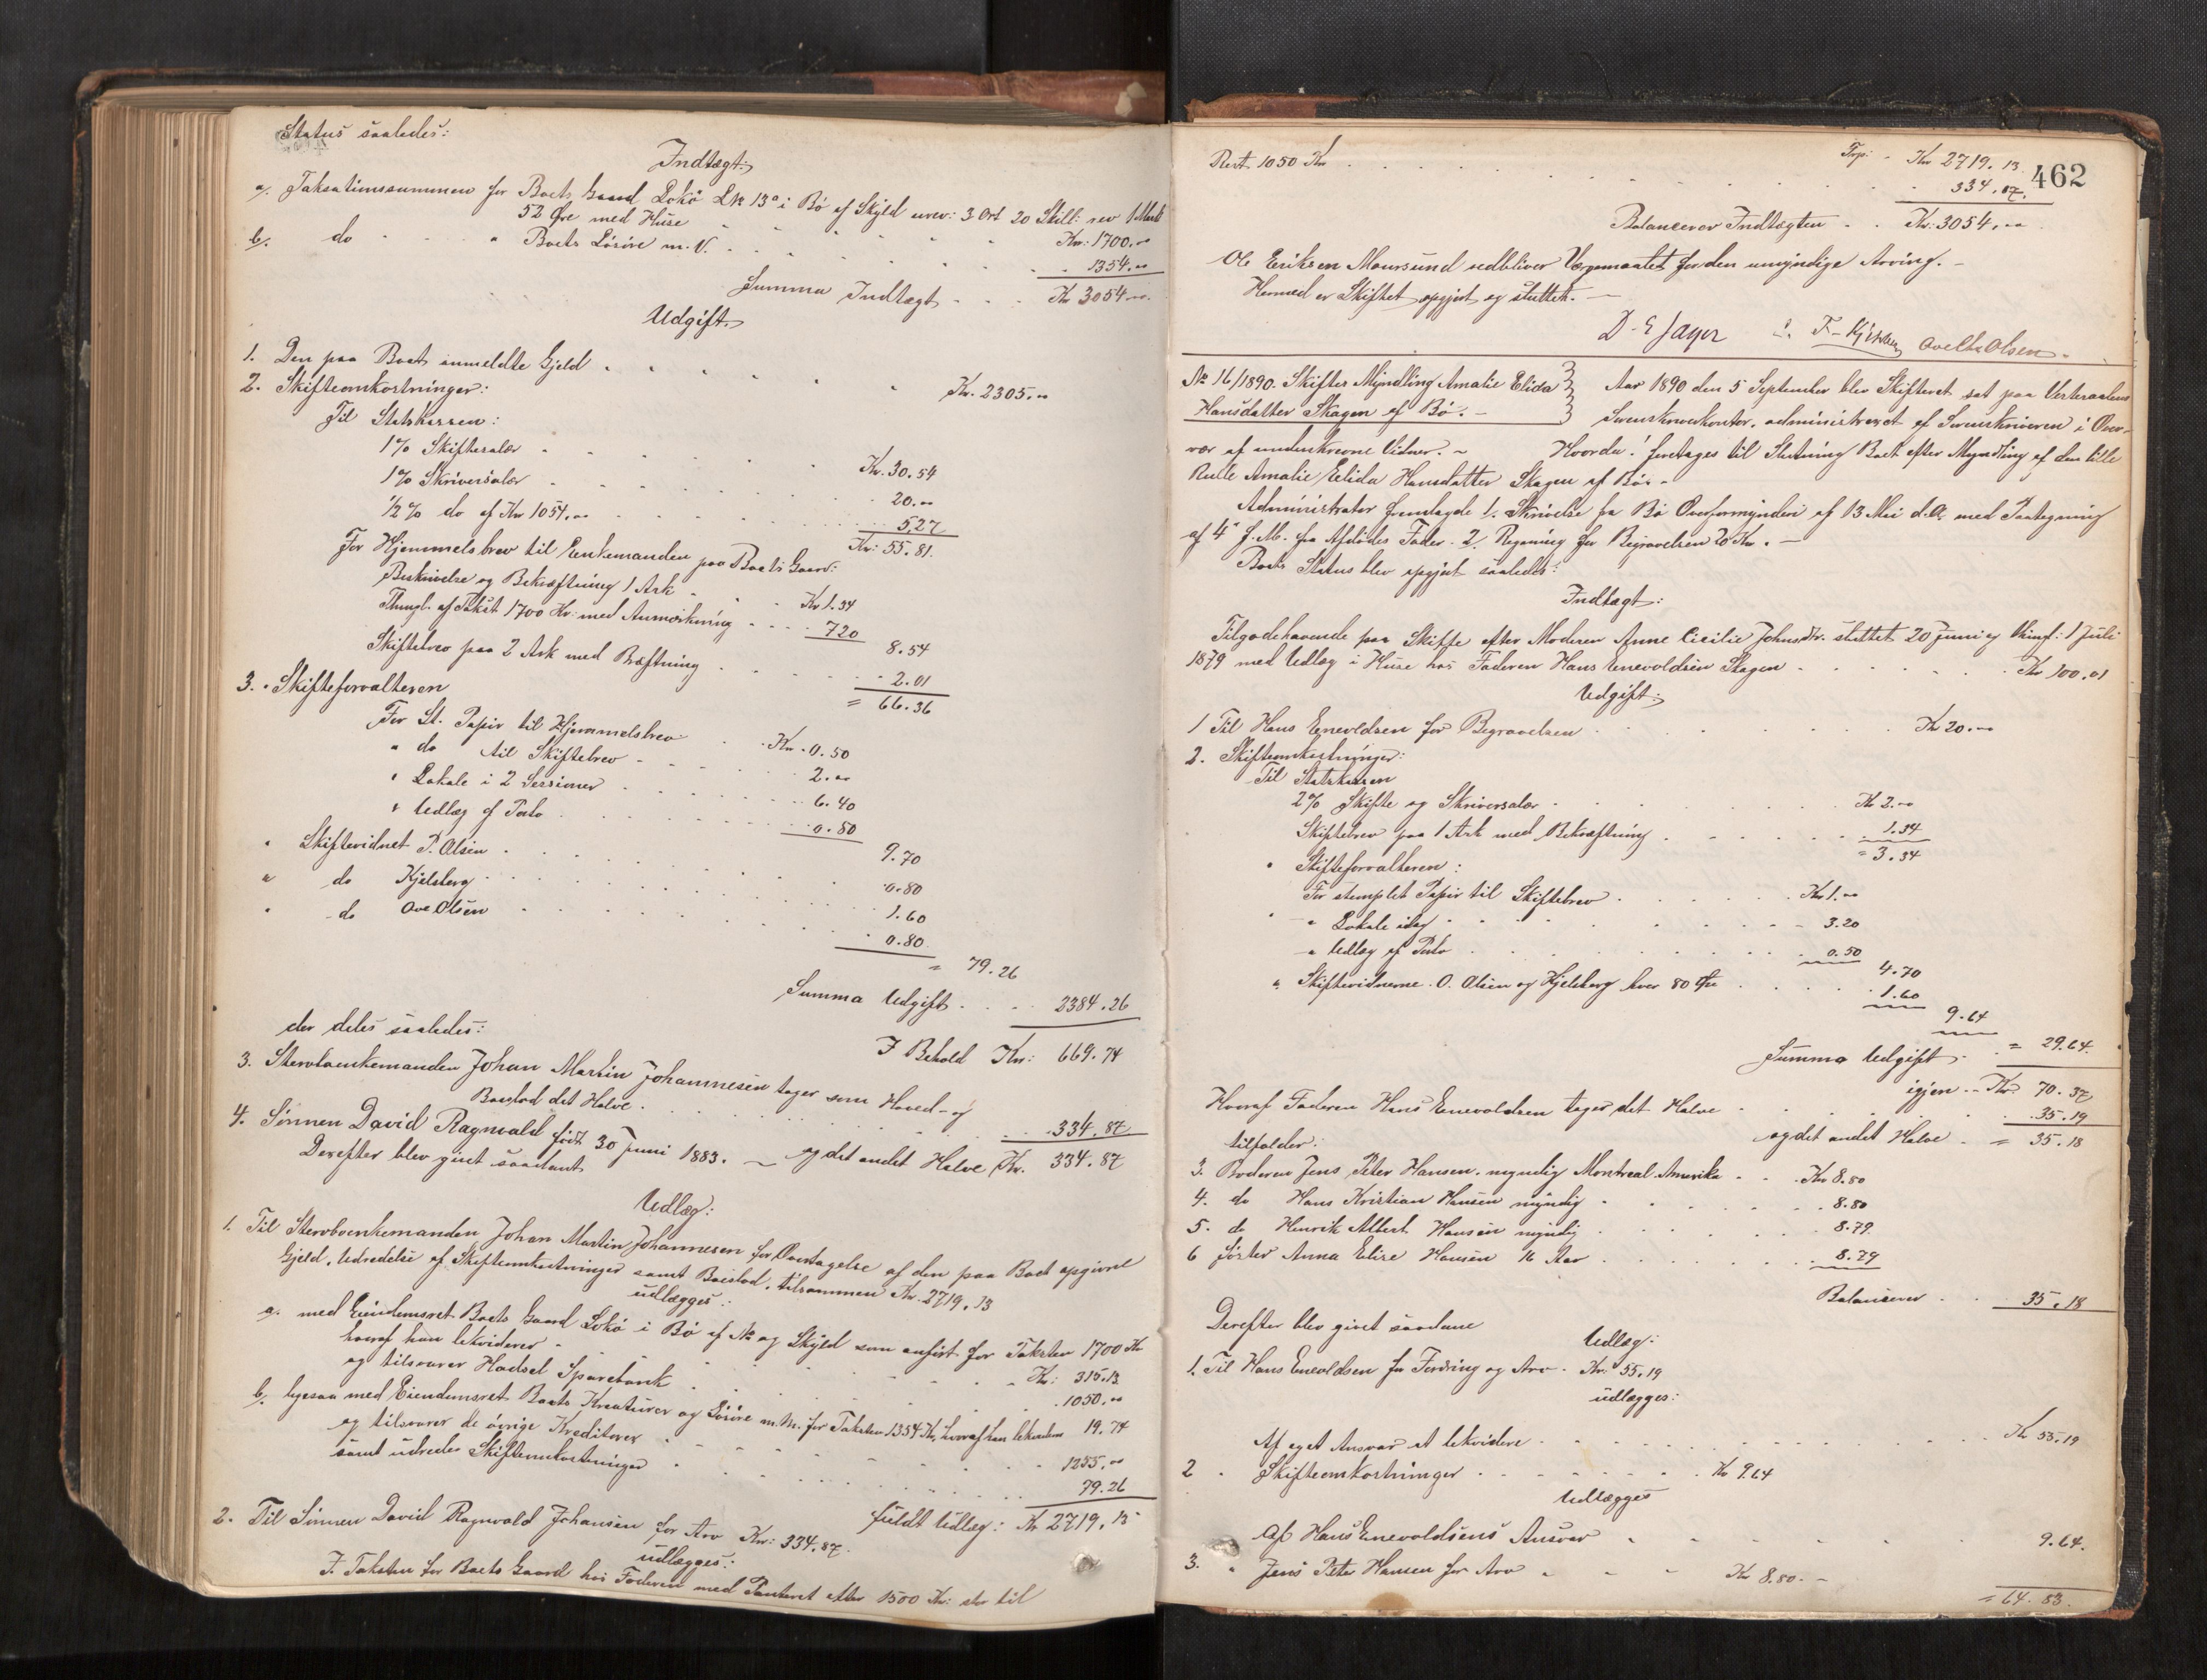 Status saaledes:
Indtægt:
a/. Taksationssummen for Boets Gaard Lokø L№ 13a i Bø af Skyld urev: 3 Ort 20 Skill: rev 1 Mark
52 Øre med Huse Kr: 1700.00
b/. do " Boets Løsøre m. V. 1354.00
Summa Indtægt Kr 3054.00
Udgift.
1. Den paa Boet anmeldte Gjeld Kr. 2305.00
2. Skifteomkostninger:
Til Statskassen:
1% Skiftesalær Kr. 30.54
1% Skriversalær 20.00
½% do af Kr 1054.00 5.27
Kr: 55.81.
For Hjemmelsbrev til Enkemanden paa Boets Gaard:
Beskrivelse og Bekræftning 1 Ark Kr 1.34
Thingl. af Takst 1700 Kr. med Anmærkning 720
8.54
Skiftebrev paa 2 Ark med Bekræftning 2.01
= 66.36
3. " Skifteforvalteren
For St. Papir til Hjemmelsbrev Kr. 0.50
" do til Skiftebrev 2.00
" Lokale i 2 Sessioner 6.40
" Udlæg af Porto 0.80
9.70
" Skiftevidnet P. Olsen 0.80
" do Kjelsberg 1.60
" do Ove Olsen 0.80
= 79.26
Summa Udgift 2384.26
I Behold Kr: 669.74
der deles saaledes:
3. Stervboenkemanden Johan Martin Johannesen tager som Hoved- og
Boeslod det Halve 334.87
og det andet Halve Kr. 334.87
4. Sønnen David Ragnvald født 30 Juni 1883.
Derefter blev givet saadant
Udlæg:
1. Til Stervboenkemanden Johan Martin Johannesen for Overtagelse af den paa Boet opgivne
Gjeld, Udredelse af Skifteomkostninger samt Boeslod, tilsammen Kr. 2719.13
udlægges:
a. med Eiendomsret Boets Gaard Lokø i Bø af № og Skyld som anført for Taksten 1700 Kr
hvoraf han lekviderer Kr: 315.13
og tilsvarer Hadsel Sparebank 1050.00
b/. ligesaa med Eiendomsret Boets Kreaturer og Løsøre m.M. for Taksten 1354 Kr, hvoraf han lekviderer 19.74
og tilsvarer de øvrige Kreditorer 1255.00
samt udreder Skifteomkostninger 79.26
fuldt Udlæg: Kr 2719.13
2. Til Sønnen David Ragnvald Johansen for Arv Kr: 334.87
udlægges:
I. Taksten for Boets Gaard hos Faderen med Panteret efter 1500 Kr: stor til
462
Rest. 1050 Kr
Trp: Kr 2719.13
334.87.
Balancerer Indtægten Kr: 3054.00
Ole Eriksen Maursund vedbliver Værgemaalet for den umyndige Arving.
Hermed er Skiftet opgjort og sluttet.
Ove Chr Olsen
№ 16/1890. Skifter Myndling Amalie Elida
Hansdatter Skagen af Bø.
Aar 1890 den 5 September blev Skifteret sat paa Vesteraalens
Sorenskriverkontor, administreret af Sorenskriveren i Over-
vær af underskrevne Vidner. Hvorda: foretages til Slutning Boet efter Myndling af den lille
Rulle Amalie Elida Hansdatter Skagen af Bø.
Administrator fremlagde 1. Skrivelse fra Bø Overformynderi af 13 Mai d.A. med Paategning
af 4de f. M. fra Afdødes Fader. 2/. Regning for Begravelsen 20 Kr.
Boets Status blev opgjort saaledes:
Indtægt:
Tilgodehavende paa Skifte efter Moderen Anne Cicilie Johnsdtr. sluttet 20 Juni og thingl: 1 Juli
1879 med Udlæg i Huse hos Faderen Hans Enevoldsen Skagen Kr 100.01
Udgift:
1 Til Hans Enevoldsen for Begravelsen Kr 20.00
2. Skifteomkostninger:
Til Statskassen
2% Skifte og Skriversalær Kr 2.00
Skiftebrev paa 1 Ark med Bekræftning 1.34
= 3.34
" Skifteforvalteren:
For stemplet Papir til Skiftebrev Kr 1.00
" Lokale idag 3.20
" Udlæg af Porto 0.50
4.70
" Skiftevidnerne O. Olsen og Kjelsberg hver 80 Øre 1.60
9.64
Summa Udgift = 29.64.
igjen Kr. 70.37
Hvoraf Faderen Hans Enevoldsen tager det Halve 35.19
og det andet Halve = 35.18
tilfalder:
3. Broderen Jens Peter Hansen, myndig Montreal Amerika Kr 8.80
4. do Hans Kristian Hansen myndig 8.80
5. do Henrik Albert Hansen myndig 8.79
6 Søster Anna Elise Hansen 16 Aar 8.79
Balancerer 35.18
Derefter blev givet saadane
Udlæg:
1. Til Hans Enevoldsen for Fordring og Arv Kr. 55.19
udlægges:
Af eget Ansvar at lekvidere Kr 55.19
2 " Skifteomkostninger Kr 9.64
Udlægges
Af Hans Enevoldsens Ansvar 9.64.
3. " Jens Peter Hansen for Arv Kr 8.80.
= 64.83.